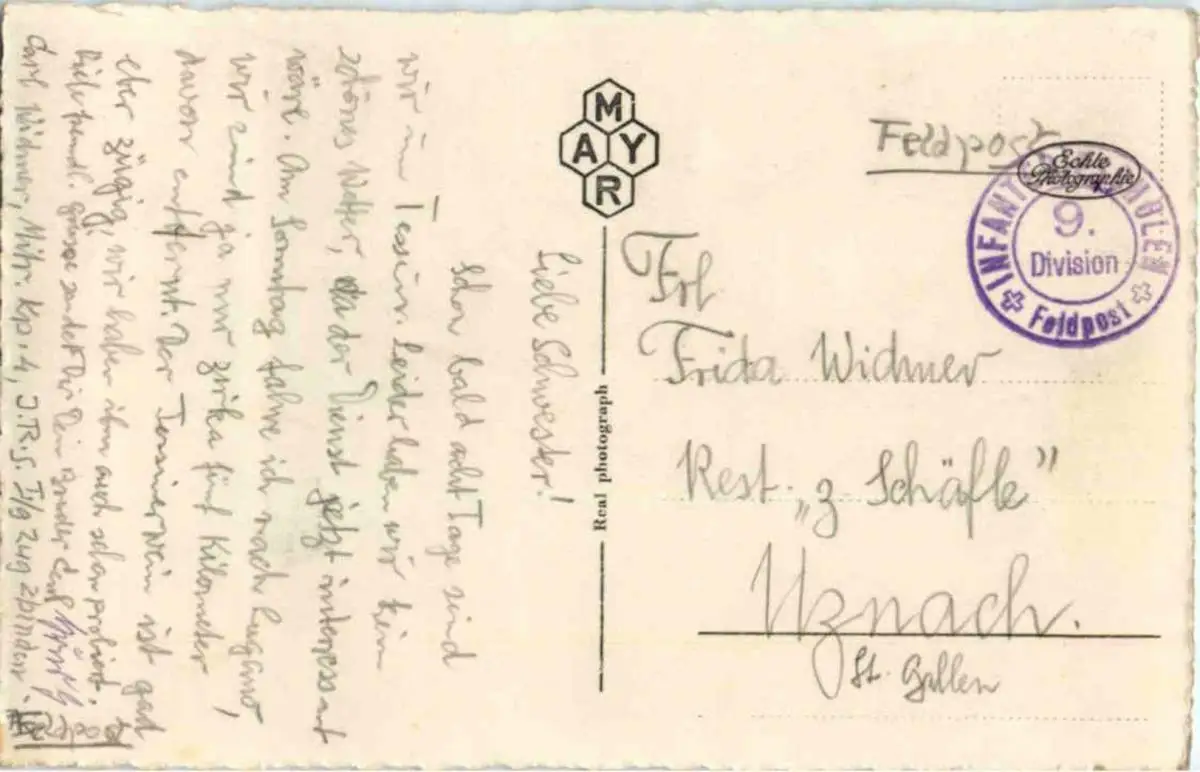 Liebe Schwester!
Schon bald acht Tage sind
wir im Tessin. Leider haben wir kein
schönes Wetter, da der Dienst jetzt interessant
wäre. Am Sonntag fahre ich nach Lugano,
wir sind ja nur zirka fünf Kilometer
davon entfernt. Der Tessinerwein ist gut
aber zügig, wir haben ihn auch schon probiert.
freundl. Grüsse sendet Dir Dein Bruder Carl
Carl Widmer, Mitr. Kp. 4, I.R.
MAYR
Real photograph
Feldpost
Echte
Photographie
INFANT
9.
Division
Feldpost
Frl
Frida Widmer
Rest. „z Schäfle"
Uznach.
St. Gallen